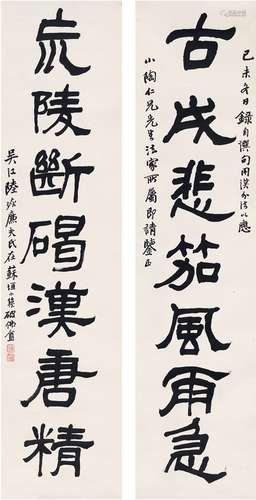 己未冬日錄自譔句用漢分法以應
古戍悲笳風雨急
小陶仁兄先生法家所屬即請鑒正
荒陵斷碣漢唐精
吳江陸恢廉夫氏在蘇